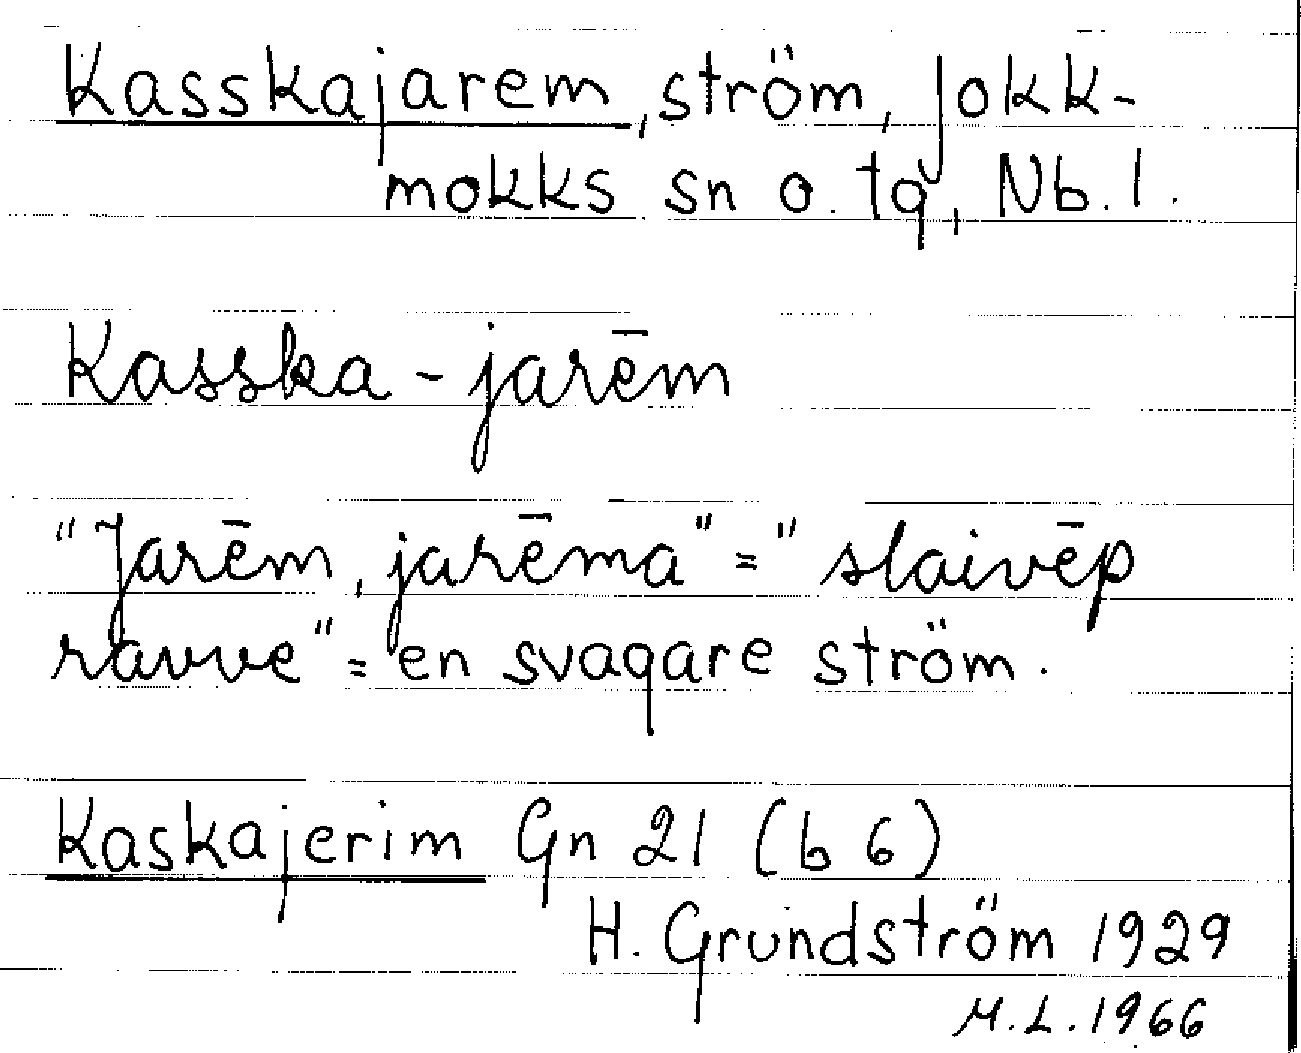 Kasskajarem, ström, Jokk-
mokks sn o. tg, Nb. l.
Kasska-jarēm
"Jarēm, jarēma" = "slaivēp
ravve" = en svagare ström.
Kaskajerim Gn 21 (b 6)
H. Grundström 1929
M.L. 1966